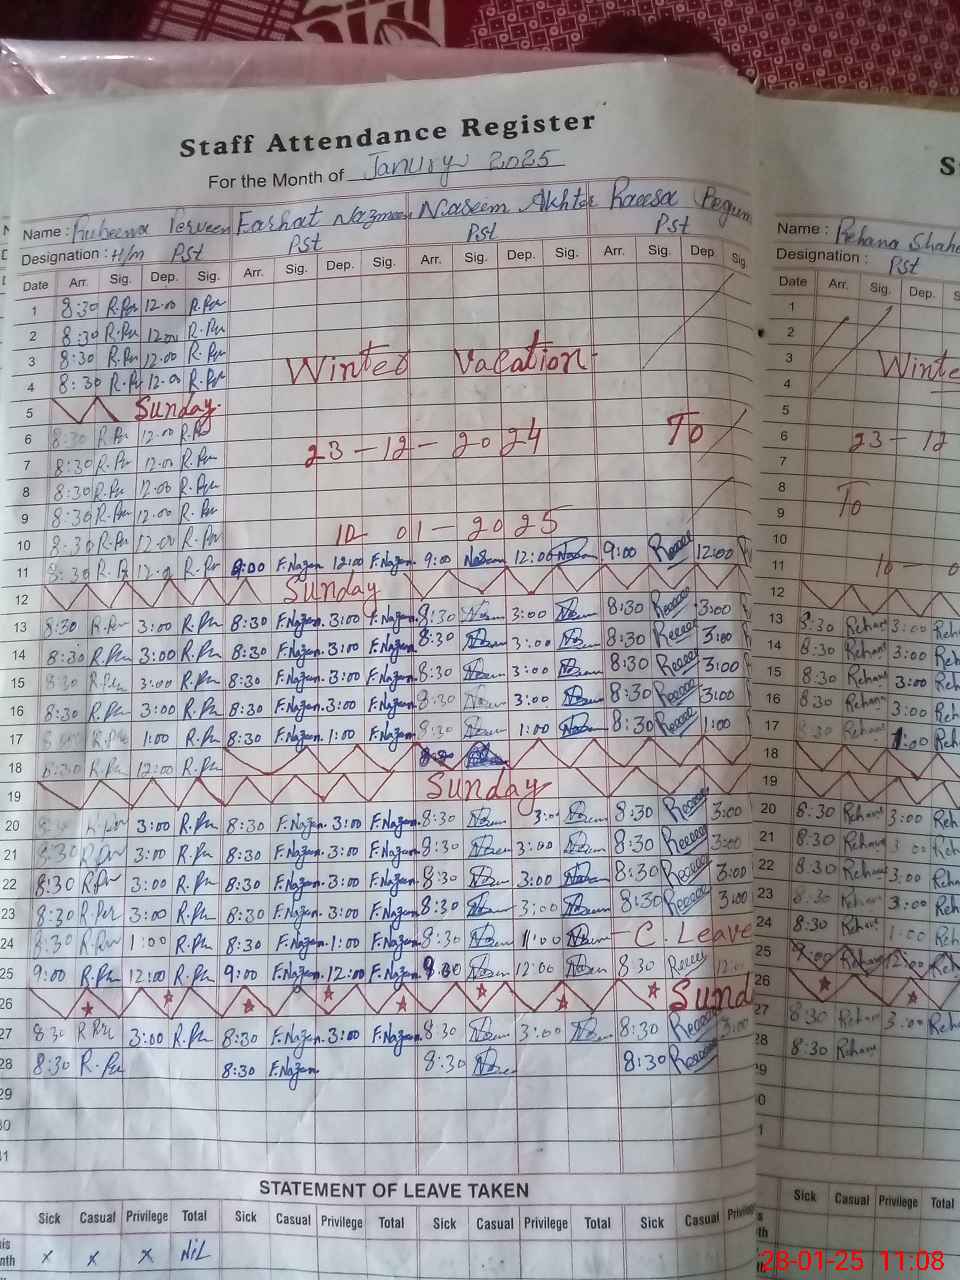 Staff Attendance Register
For the Month of January 2025
Name : Rubeena Perveen Farhat Nazmeen Naseem Akhter Raeesa Begum
Designation : H/m Pst Pst Pst Pst
Date Arr. Sig. Dep. Sig. Arr. Sig. Dep. Sig. Arr. Sig. Dep. Sig. Arr. Sig. Dep. Sig.
1 8:30 R.Per 12:00 R.Per
2 8:30 R.Per 12:00 R.Per
3 8:30 R.Per 12:00 R.Per Winter Vacation
4 8:30 R.Per 12:00 R.Per
5 Sunday
6 8:30 R.Per 12:00 R.Per 23-12-2024 To
7 8:30 R.Per 12:00 R.Per
8 8:30 R.Per 12:00 R.Per
9 8:30 R.Per 12:00 R.Per
10 8:30 R.Per 12:00 R.Per 10 01-2025
11 8:30 R.Per 12:00 R.Per 9:00 F.Nazm 12:00 F.Nazm 9:00 12:00 9:00 12:00
12 Sunday
13 8:30 R.Per 3:00 R.Per 8:30 F.Nazm 3:00 F.Nazm 8:30 3:00 8:30 3:00
14 8:30 R.Per 3:00 R.Per 8:30 F.Nazm 3:00 F.Nazm 8:30 3:00 8:30 3:00
15 8:30 R.Per 3:00 R.Per 8:30 F.Nazm 3:00 F.Nazm 8:30 3:00 8:30 3:00
16 8:30 R.Per 3:00 R.Per 8:30 F.Nazm 3:00 F.Nazm 8:30 3:00 8:30 3:00
17 R.Per 1:00 R.Per 8:30 F.Nazm 1:00 F.Nazm 8:30 1:00 8:30 1:00
18 8:30 R.Per 12:00 R.Per
19 Sunday
20 R.Per 3:00 R.Per 8:30 F.Nazm 3:00 F.Nazm 8:30 3:00 8:30 3:00
21 8:30 R.Per 3:00 R.Per 8:30 F.Nazm 3:00 F.Nazm 8:30 3:00 8:30 3:00
22 8:30 R.Per 3:00 R.Per 8:30 F.Nazm 3:00 F.Nazm 8:30 3:00 8:30 3:00
23 8:30 R.Per 3:00 R.Per 8:30 F.Nazm 3:00 F.Nazm 8:30 3:00 8:30 3:00
24 8:30 R.Per 1:00 R.Per 8:30 F.Nazm 1:00 F.Nazm 8:30 1:00 C. Leave
25 9:00 R.Per 12:00 R.Per 9:00 F.Nazm 12:00 F.Nazm 12:00 8:30 12:00
26 Sund
27 8:30 R.Per 3:00 R.Per 8:30 F.Nazm 3:00 F.Nazm 8:30 3:00 8:30 3:00
28 8:30 R.Per 8:30 F.Nazm 8:30 8:30
29
STATEMENT OF LEAVE TAKEN
Sick Casual Privilege Total Sick Casual Privilege Total Sick Casual Privilege Total Sick Casual
x x x NiL
Name : Rehana
Designation : Pst
Date Arr. Sig. Dep.
1
2
3
4
5
6 23-12
7
8
9 To
10
11 10 - 0
12
13 8:30 Rehana 3:00
14 8:30 Rehana 3:00
15 8:30 Rehana 3:00
16 8:30 Rehana 3:00
17 8:30 Rehana 1:00
18
19
20 8:30 Rehana 3:00
21 8:30 Rehana 3:00
22 8:30 Rehana 3:00
23 8:30 Rehana 3:00
24 8:30 Rehana 1:00
25 9:00 Rehana 12:00
26
27 8:30 Rehana 3:00
28 8:30 Rehana
Sick Casual Privilege Total
28-01-25 11:08